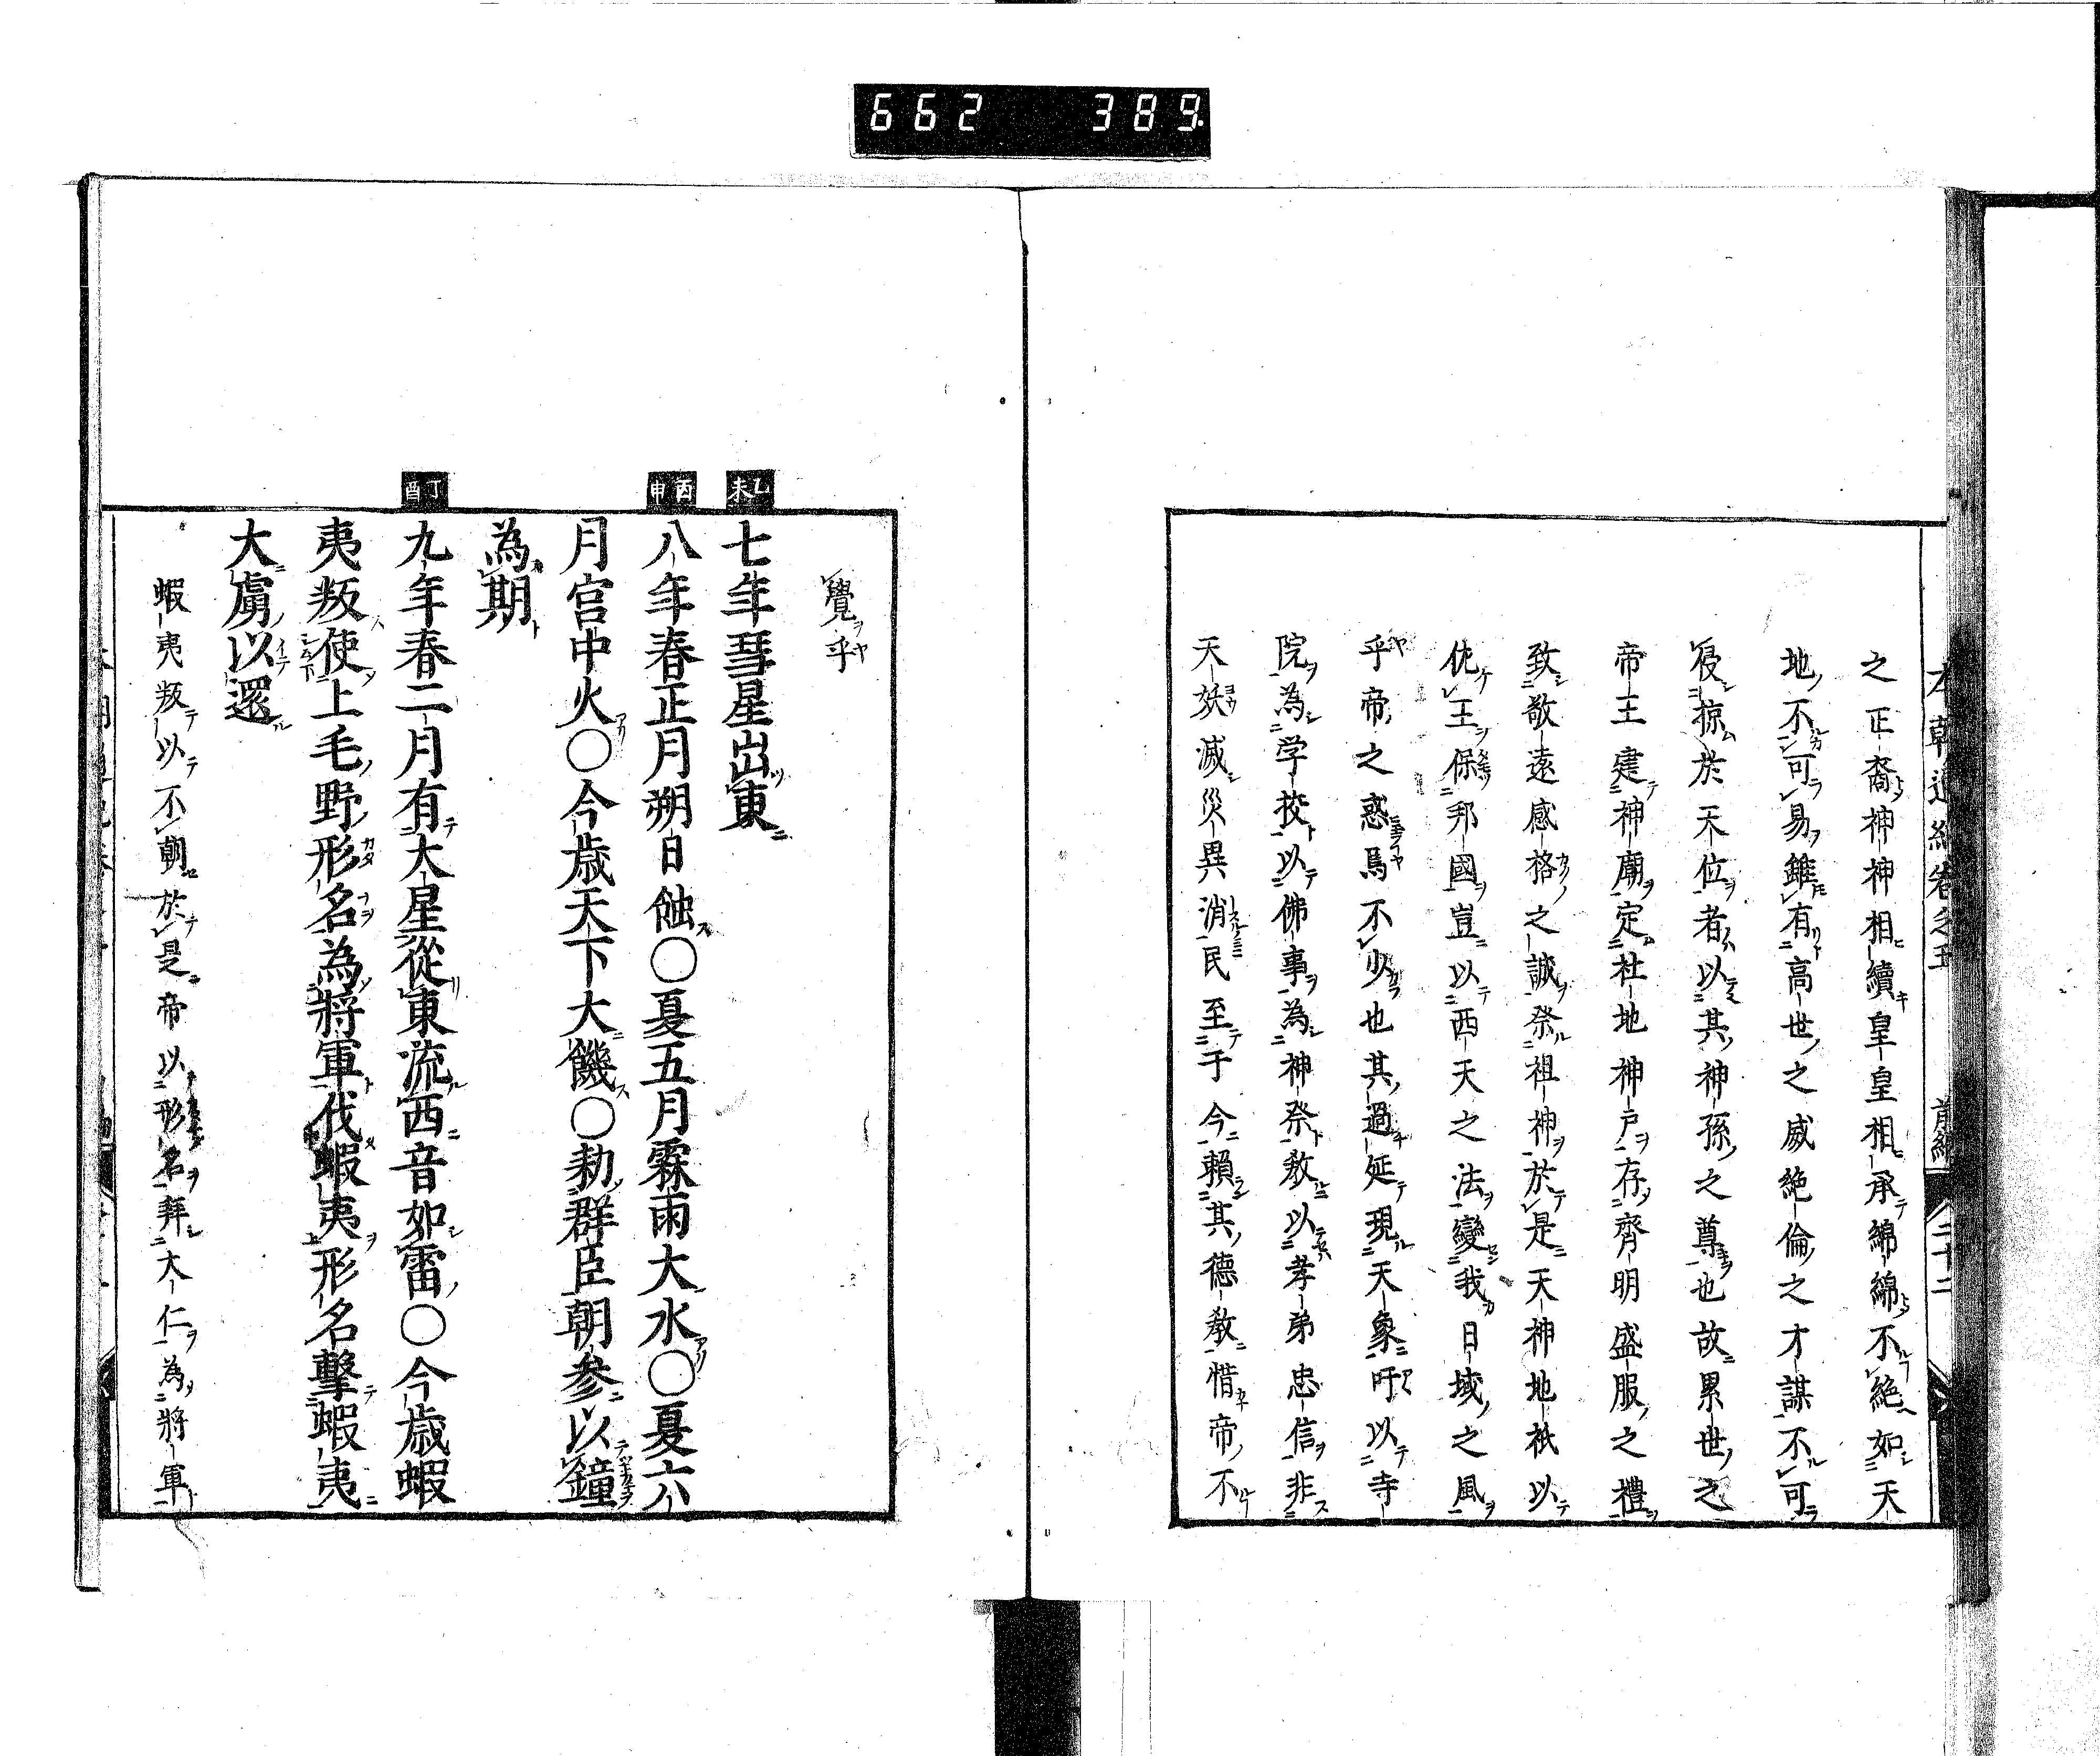 662 389
之正裔神神相續皇皇相承綿綿不絕如天
地不可易雖有高世之威絶倫之才謀不可
侵掠於天位者以其神孫之尊也故累世之
帝王建神廟定社地神戸存齊明盛服之禮
致敬遠感格之誠祭祖神於是天神地祇以
王保邦國豈以西天之法變我日域之風
乎帝之惑焉不少也其過延現天象吁以寺
院為学校以佛事為神祭教以孝弟忠信非
天妖滅災異消民至于今賴其德教惜帝不
覺乎
乙未
七年彗星出東
丙申
八年春正月朔日蝕〇夏五月霖雨大水〇夏六
月宮中火〇今歳天下大饑〇勅群臣朝参以鐘
為期
丁酉
九年春二月有大星從東流西音如雷〇今歳蝦
夷叛使上毛野形名為將軍伐蝦夷形名擊蝦夷
大虜以還
蝦夷叛以不朝於是帝以形名拜大仁為將軍